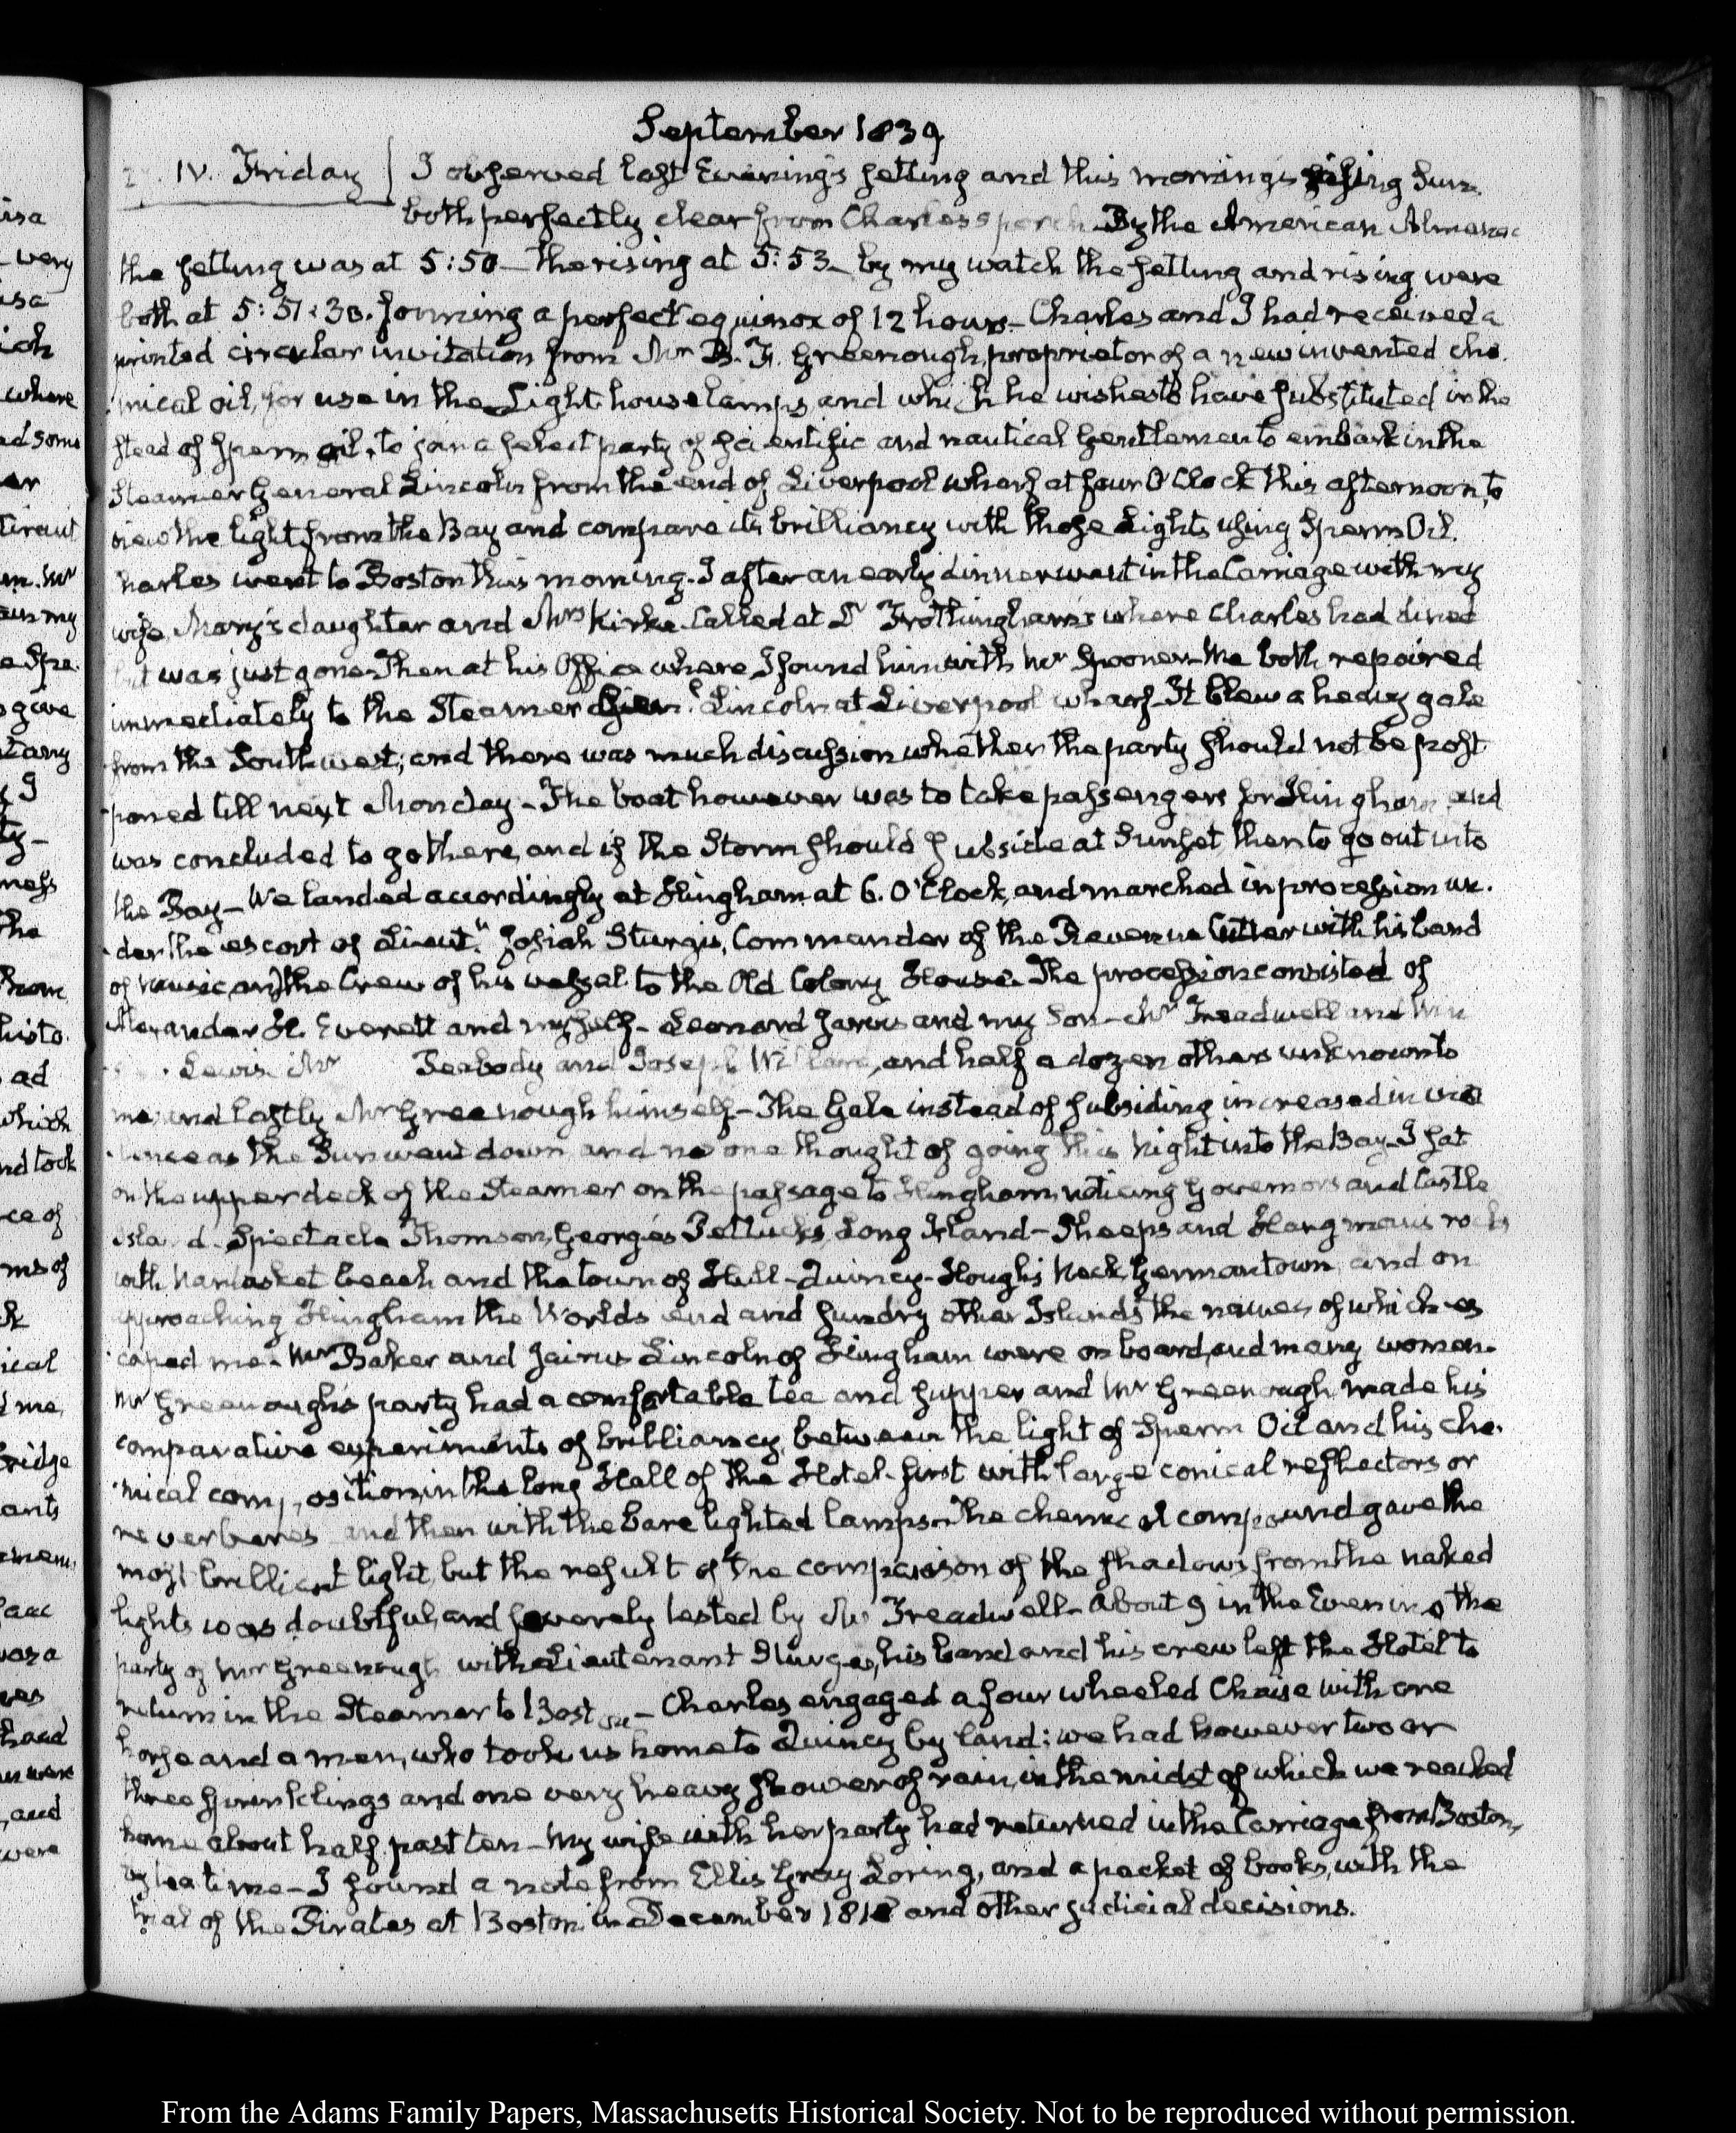 September 1839
IV. Friday I observed last Evening's setting and this morning's rising Sun.
both perfectly clear from Charles's porch. By the American Almanac
the setting was at 5:50 — the rising at 5:53 — by my watch the setting and rising were
both at 5:51:30. forming a perfect equinox of 12 hours — Charles and I had received a
printed circular invitation from Mr B. F. Greenough, proprietor of a new invented che-
mical oil, for use in the Light house lamps and which he wishes to have substituted in the
stead of sperm oil, to join a select party of scientific and nautical Gentlemen to embark in the
Steamer General Lincoln from the end of Liverpool wharf at four O'Clock this afternoon, to
view the light from the Bay and compare its brilliancy with those Lights using Sperm Oil.
Charles went to Boston this morning. I after an early dinner went in the Carriage with my
wife, Mary's daughter and Mrs Kirke. Called at Dr Frothingham's where Charles had dined
but was just gone. Then at his Office where I found him with Mr Spooner. We both repaired
immediately to the Steamer Genl. Lincoln at Liverpool wharf. It blew a heavy gale
from the Southwest; and there was much discussion whether the party should not be post
poned till next Monday — The boat however was to take passengers for Hingham, and
was concluded to go there, and if the Storm should subside at Sunset then to go out into
the Bay — We landed accordingly at Hingham at 6. O'Clock, and marched in procession un-
der the escort of Lieut. Josiah Sturgis, Commander of the Revenue Cutter with his band
of music, and the Crew of his vessel to the Old Colony House. The procession consisted of
Alexander H. Everett and myself — Leonard Jarvis and my Son — Mr Treadwell and
Lewis. Mr Peabody and Joseph Willard, and half a dozen others unknown to
me, and lastly Mr Greenough himself — The Gale instead of subsiding increased in vio
lence as the Sun went down and no one thought of going this Night into the Bay — I sat
on the upper deck of the Steamer on the passage to Hingham, noticing Governors and Castle
Island. Spectacle Thomson, George's Pettucks, Long Island — Sheeps and Hangman's rocks
with Nantasket beach and the town of Hull — Quincy — Hough's Neck, Germantown, and on
approaching Hingham the Worlds end and sundry other Islands the names of which es
caped me — Mr Baker and Jairus Lincoln of Hingham were on board, and many women.
Mr Greenough's party had a comfortable tea and supper and Mr Greenough made his
comparative experiments of brilliancy between the light of Sperm Oil and his che-
mical composition, in the long Hall of the Hotel — first with large conical reflectors or
reverberes and then with the bare lighted lamps. The chemical compound gave the
most brilliant light, but the result of the comparison of the shadows from the naked
lights was doubtful, and severely tested by Mr Treadwell — About 9 in the Evening the
party of Mr Greenough with Lieutenant Sturges, his band and his crew left the Hotel to
return in the Steamer to Boston — Charles engaged a four wheeled Chaise with one
horse and a man, who took us home to Quincy by land: we had however two or
three sprinklings and one very heavy shower of rain, in the midst of which we reached
home about half past ten — My wife with her party had returned in the Carriage from Boston,
by tea time — I found a note from Ellis Gray Loring, and a packet of books, with the
trial of the Pirates at Boston in December 1818 and other judicial decisions.
From the Adams Family Papers, Massachusetts Historical Society. Not to be reproduced without permission.